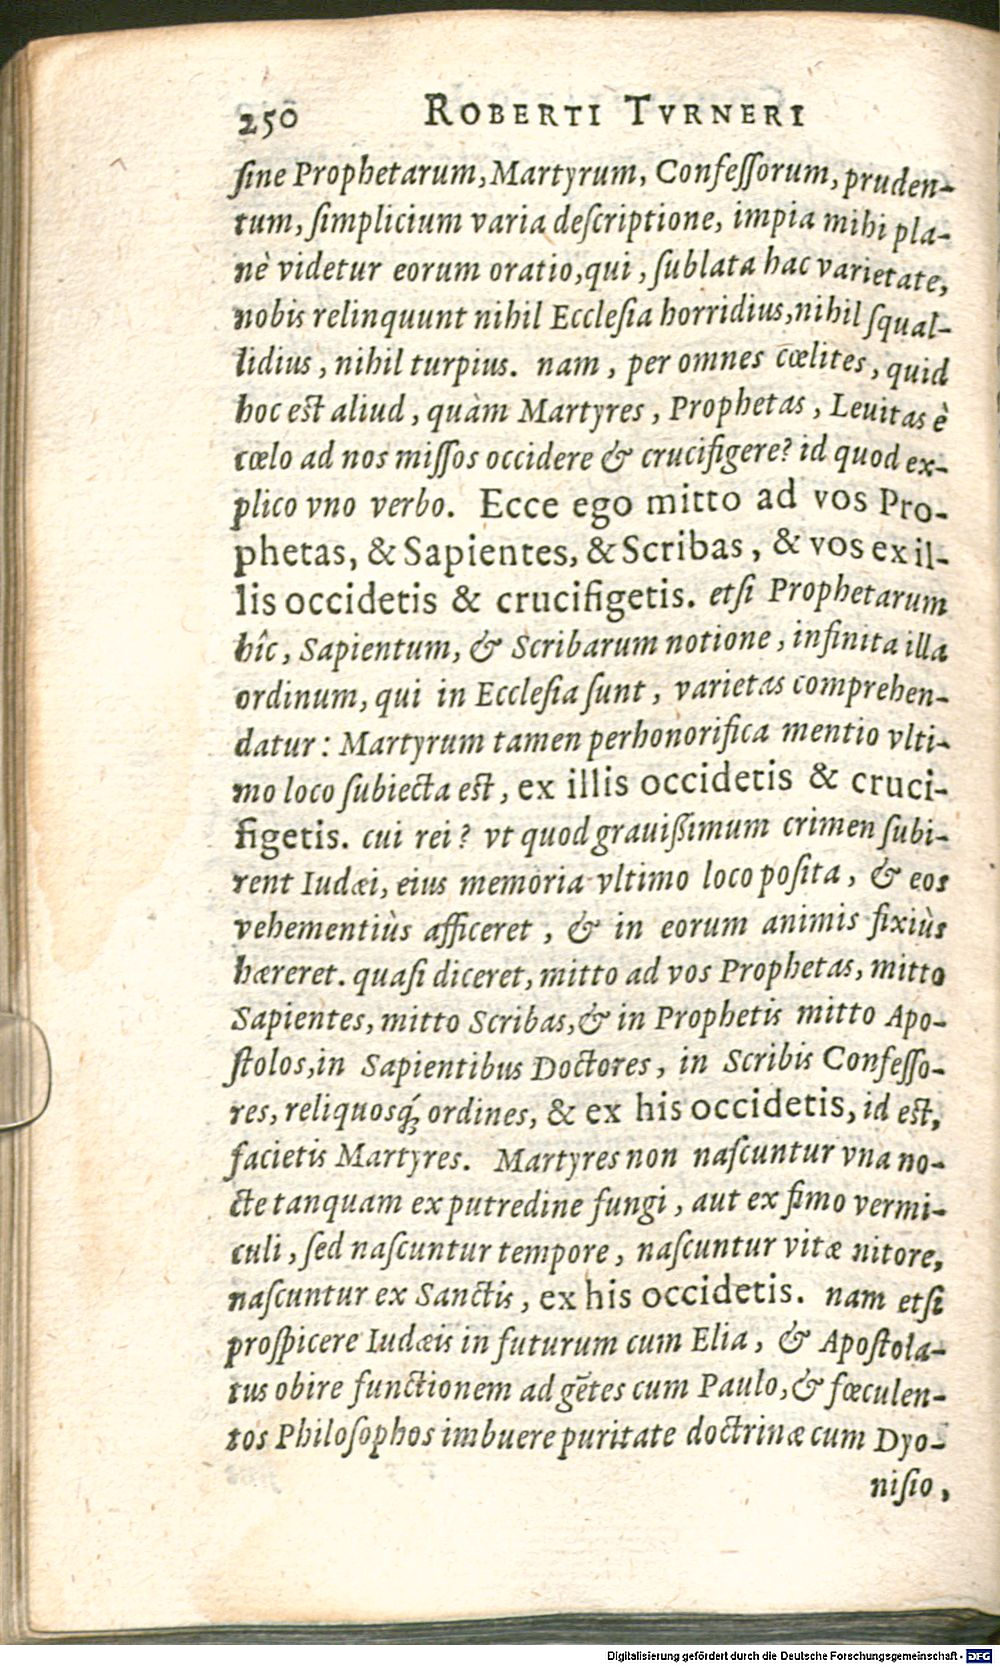 250 ROBERTI TVRNERI
ſine Prophetarum, Martyrum, Confeſſorum, pruden-
tum, ſimplicium varia deſcriptione, impia mihi pla-
nè videtur eorum oratio, qui, ſublata hac varietate,
nobis relinquunt nihil Eccleſia horridius, nihil ſqual-
lidius, nihil turpius. nam, per omnes cœlites, quid
hoc est aliud, quàm Martyres, Prophetas, Leuitas è
cœlo ad nos miſſos occidere & crucifigere? id quod ex-
plico vno verbo. Ecce ego mitto ad vos Pro-
phetas, & Sapientes, & Scribas, & vos ex il-
lis occidetis & crucifigetis. etſi Prophetarum
hîc, Sapientum, & Scribarum notione, infinita illa
ordinum, qui in Eccleſia ſunt, varietas comprehen-
datur: Martyrum tamen perhonorifica mentio vlti-
mo loco ſubiecta est, ex illis occidetis & cruci-
figetis. cui rei? vt quod grauißimum crimen ſubi-
rent Iudæi, eius memoria vltimo loco poſita, & eos
vehementiùs afficeret, & in eorum animis fixiùs
hæreret. quaſi diceret, mitto ad vos Prophetas, mitto
Sapientes, mitto Scribas, & in Prophetis mitto Apo-
ſtolos, in Sapientibus Doctores, in Scribis Confeſſo-
res, reliquosq́; ordines, & ex his occidetis, id est,
facietis Martyres. Martyres non naſcuntur vna no-
cte tanquam ex putredine fungi, aut ex fimo vermi-
culi, ſed naſcuntur tempore, naſcuntur vitæ nitore,
naſcuntur ex Sanctis, ex his occidetis. nam etſi
proſpicere Iudæis in futurum cum Elia, & Apoſtola-
tus obire functionem ad gẽtes cum Paulo, & fœculen-
tos Philoſophos imbuere puritate doctrinæ cum Dyo-
niſio,
Digitalisierung gefördert durch die Deutsche Forschungsgemeinschaft - DFG